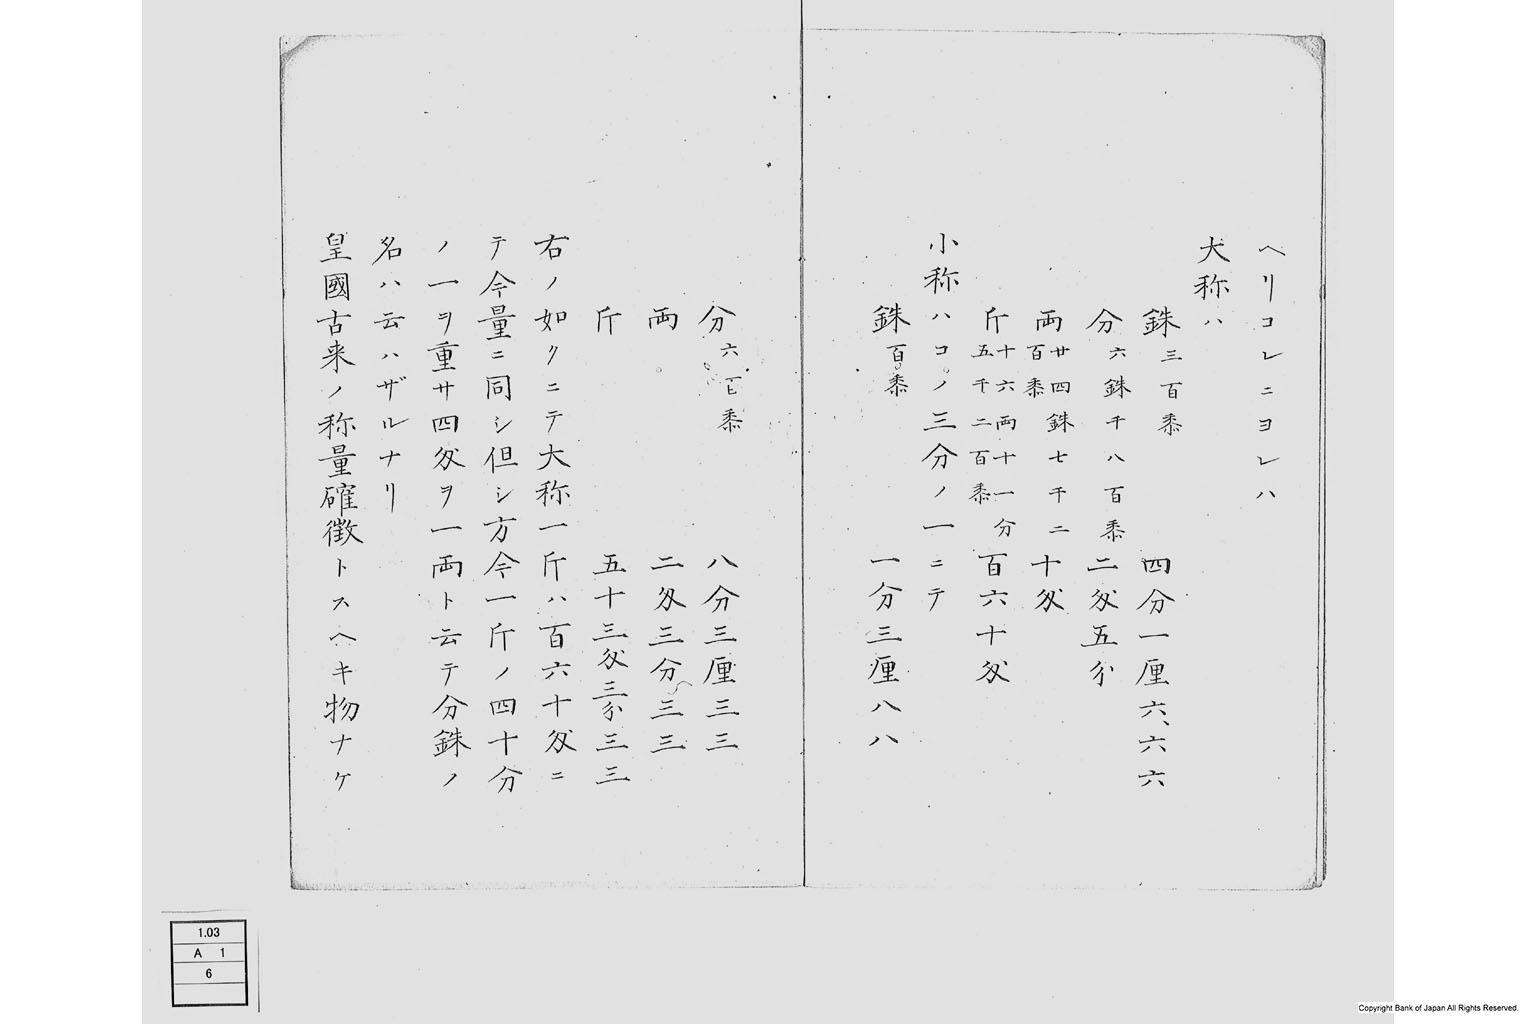 ヘリコレニヨレハ
大称ハ
銖 三百黍 四分一厘六、六六
分 六銖千八百黍 二匁五分
両 廿四銖七千二百黍 十匁
斤 十六両十一分五千二百黍 百六十匁
小称ハコノ三分ノ一ニテ
銖 百黍 一分三厘八八
分 六百黍 八分三厘三三
両 二匁三分三三
斤 五十三匁三分三三
右ノ如クニテ大称一斤ハ百六十匁ニ
テ今量ニ同シ但シ方今一斤ノ四十分
ノ一ヲ重サ四匁ヲ一両ト云テ分銖ノ
名ハ云ハザルナリ
皇國古来ノ称量確徴トスヘキ物ナケ
1.03
A 1
6
Copyright Bank of Japan All Rights Reserved.